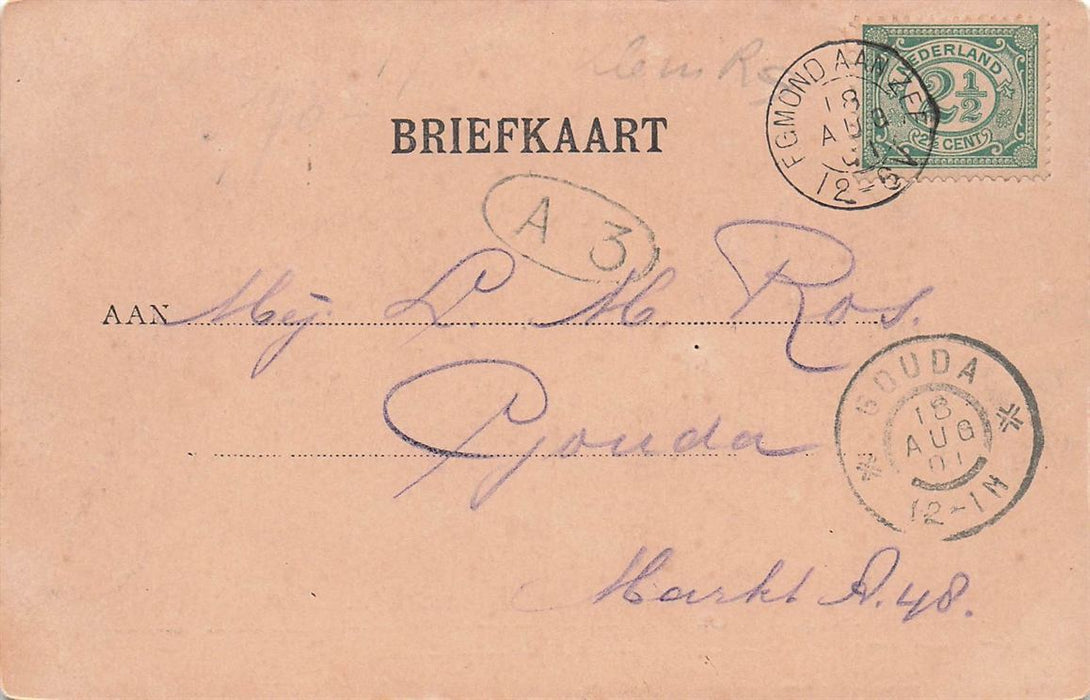 NEDERLAND
2½
2½ CENT
EGMOND AAN ZEE
18
AUG
01
12-6V
BRIEFKAART
A 3
AAN Mej. L. M. Ros.
Gouda
Markt A. 48.
GOUDA
18
AUG
01
12-1N